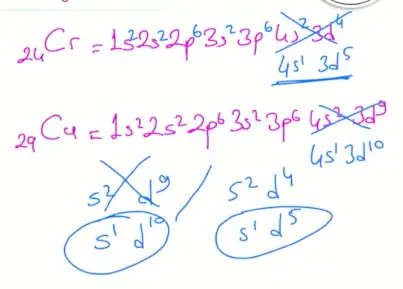 ₂₄Cr = 1s²2s²2p⁶3s²3p⁶4s²3d⁴
4s¹ 3d⁵
₂₉Cu = 1s²2s²2p⁶3s²3p⁶ 4s² 3d⁹
4s¹3d¹⁰
s² d⁹ s² d⁴
s¹ d¹⁰ s¹ d⁵